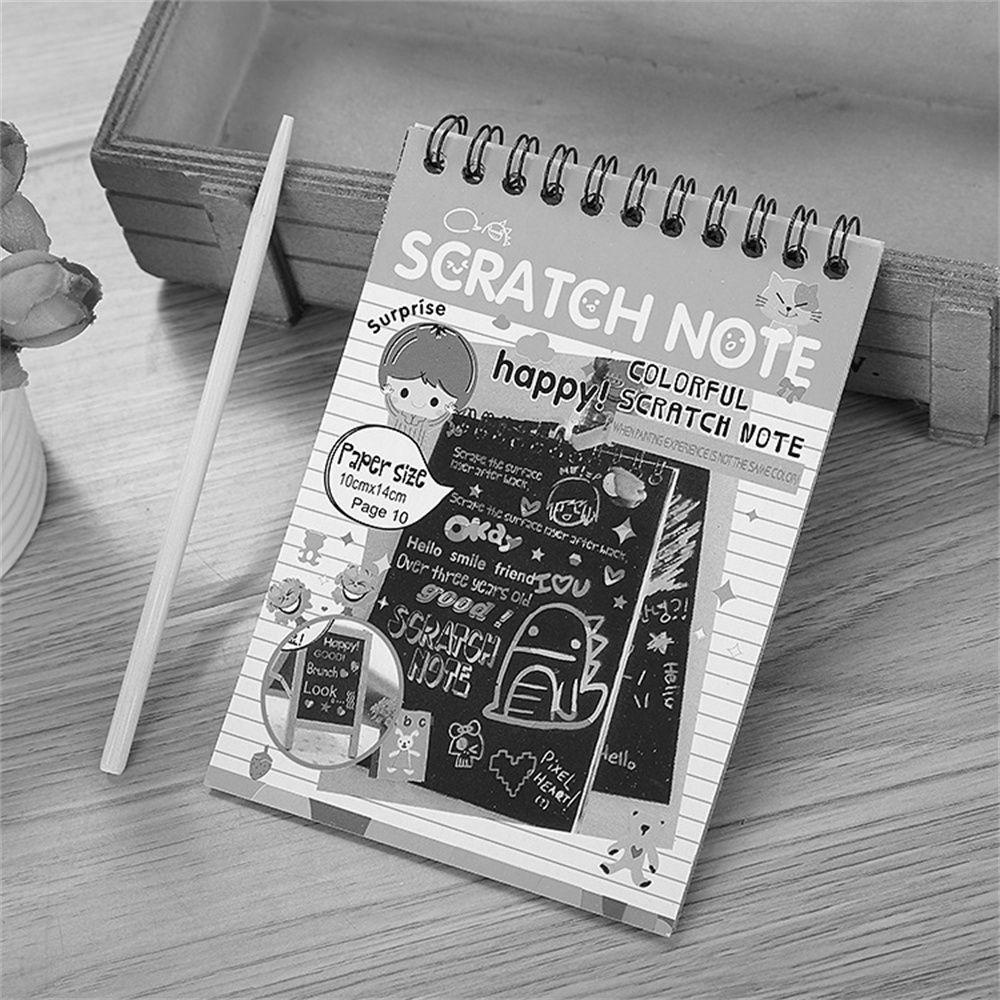 SCRATCH NOTE
Surprise
happy!
COLORFUL
SCRATCH NOTE
WHEN PAINTING EXPERIENCE IS NOT THE SAME COLOR
Paper size
10cmx14cm
Page 10
Scrape the surface
layer after back.
Scrape the surface layer after back
Okay
Hello smile friend
I U
Over three years old
good!
SCRATCH
NOTE
Happy!
GOOD!
Brunch
Look
b c
PIXEL
HEART!
(?)
Hello
Hello